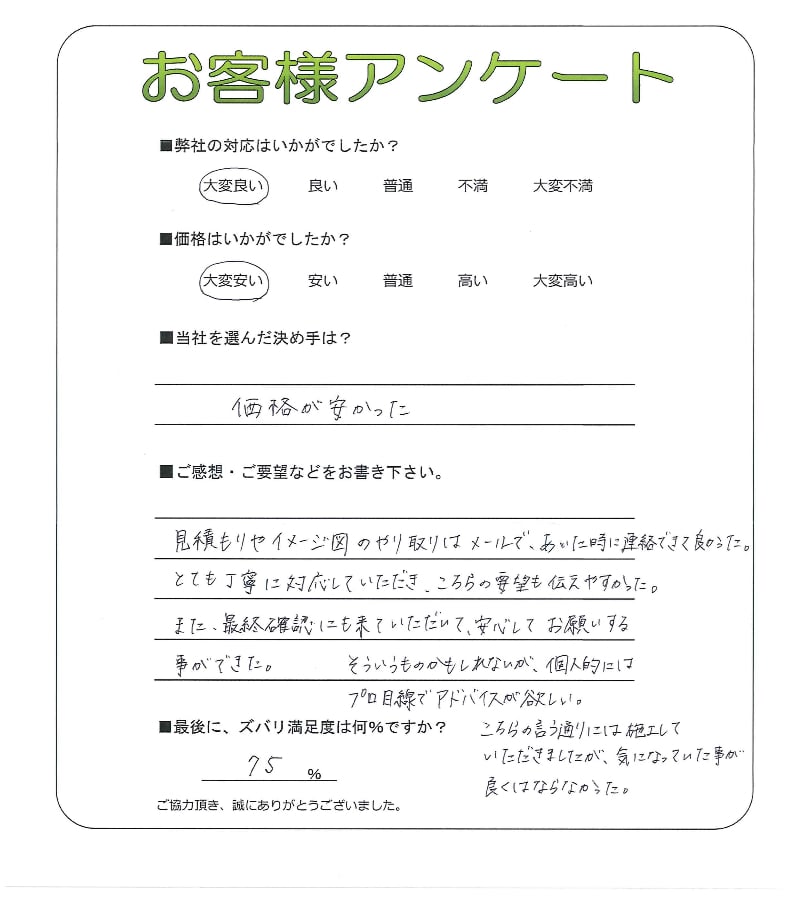 お客様アンケート
■弊社の対応はいかがでしたか？
大変良い 良い 普通 不満 大変不満
■価格はいかがでしたか？
大変安い 安い 普通 高い 大変高い
■当社を選んだ決め手は？
価格が安かった
■ご感想・ご要望などをお書き下さい。
見積もりやイメージ図のやり取りはメールで、あいた時に連絡できて良かった。
とても丁寧に対応していただき、こちらの要望も伝えやすかった。
また、最終確認にも来ていただいて、安心してお願いする
事ができた。 そういうものかもしれないが、個人的には
プロ目線でアドバイスが欲しい。
■最後に、ズバリ満足度は何%ですか？
75 %
こちらの言う通りには施工して
いただきましたが、気になっていた事が
良くはならなかった。
ご協力頂き、誠にありがとうございました。